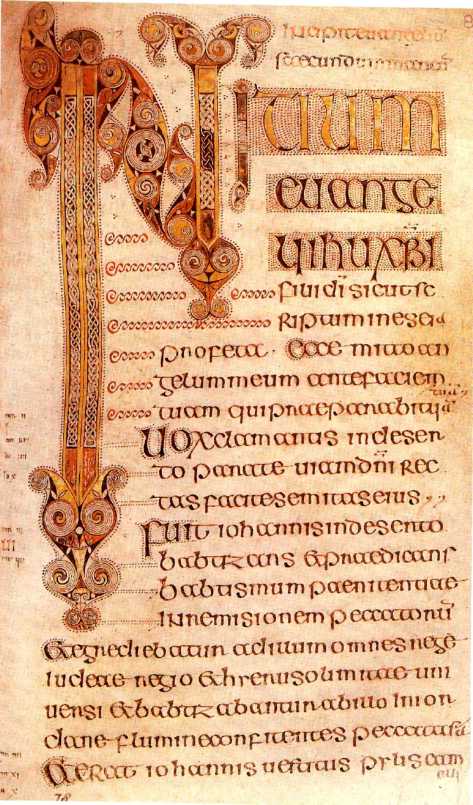 secundum
INITIUM
euange
lii ihu xpi
fili di sicut sc
riptum in eseia
profeta. Ecce mitto an
gelum meum ante faciem
tuam qui praeparabit
Uox clamantis in deser
to parate uiam dni rec
tas facite semitas eius
Fuit iohannis in deserto
babtizans & praedicans
babtismum paenitentiae
in remisionem peccatorū
& egrediebatur ad illum omnes
iudeae regio & hierusolimitae uni
uersi & babtizabantur ab illo in ior
dane flumine confitentes peccata sua
& erat iohannis uestitus pylis cam
eli
78